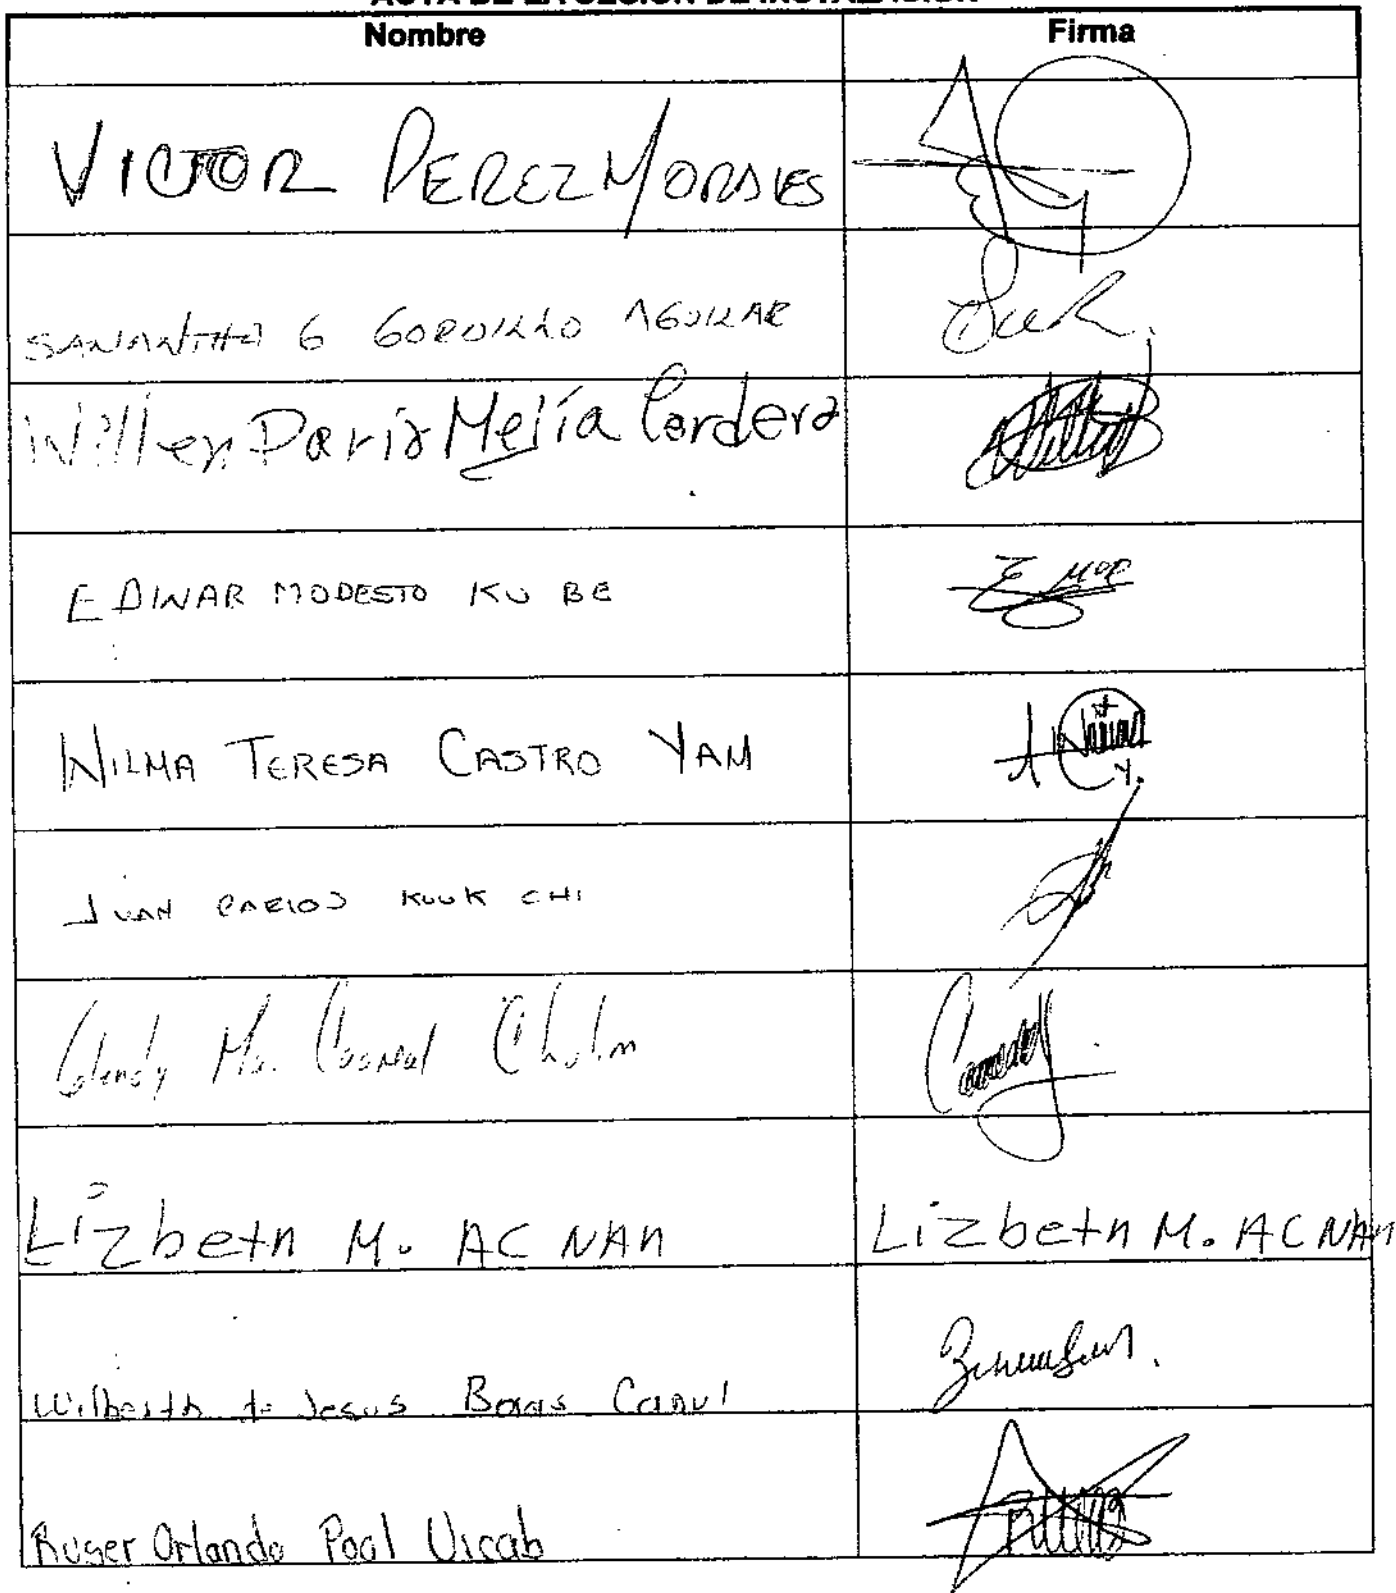 ACTA DE LA SESIÓN DE INSTALACIÓN
Nombre Firma
VICTOR PEREZ MORALES
SAMANTHA G GORDILLO AGUILAR
Willien Paris Mejía Cordero
EDINAR MODESTO KU BE
WILMA TERESA CASTRO YAM
JUAN CARLOS KUUK CHI
Glendy Ma. Canul
Lizbeth M. AC NAH Lizbeth M. AC NAH
Wilberth de Jesus Canul
Ruger Orlando Pool Uicab